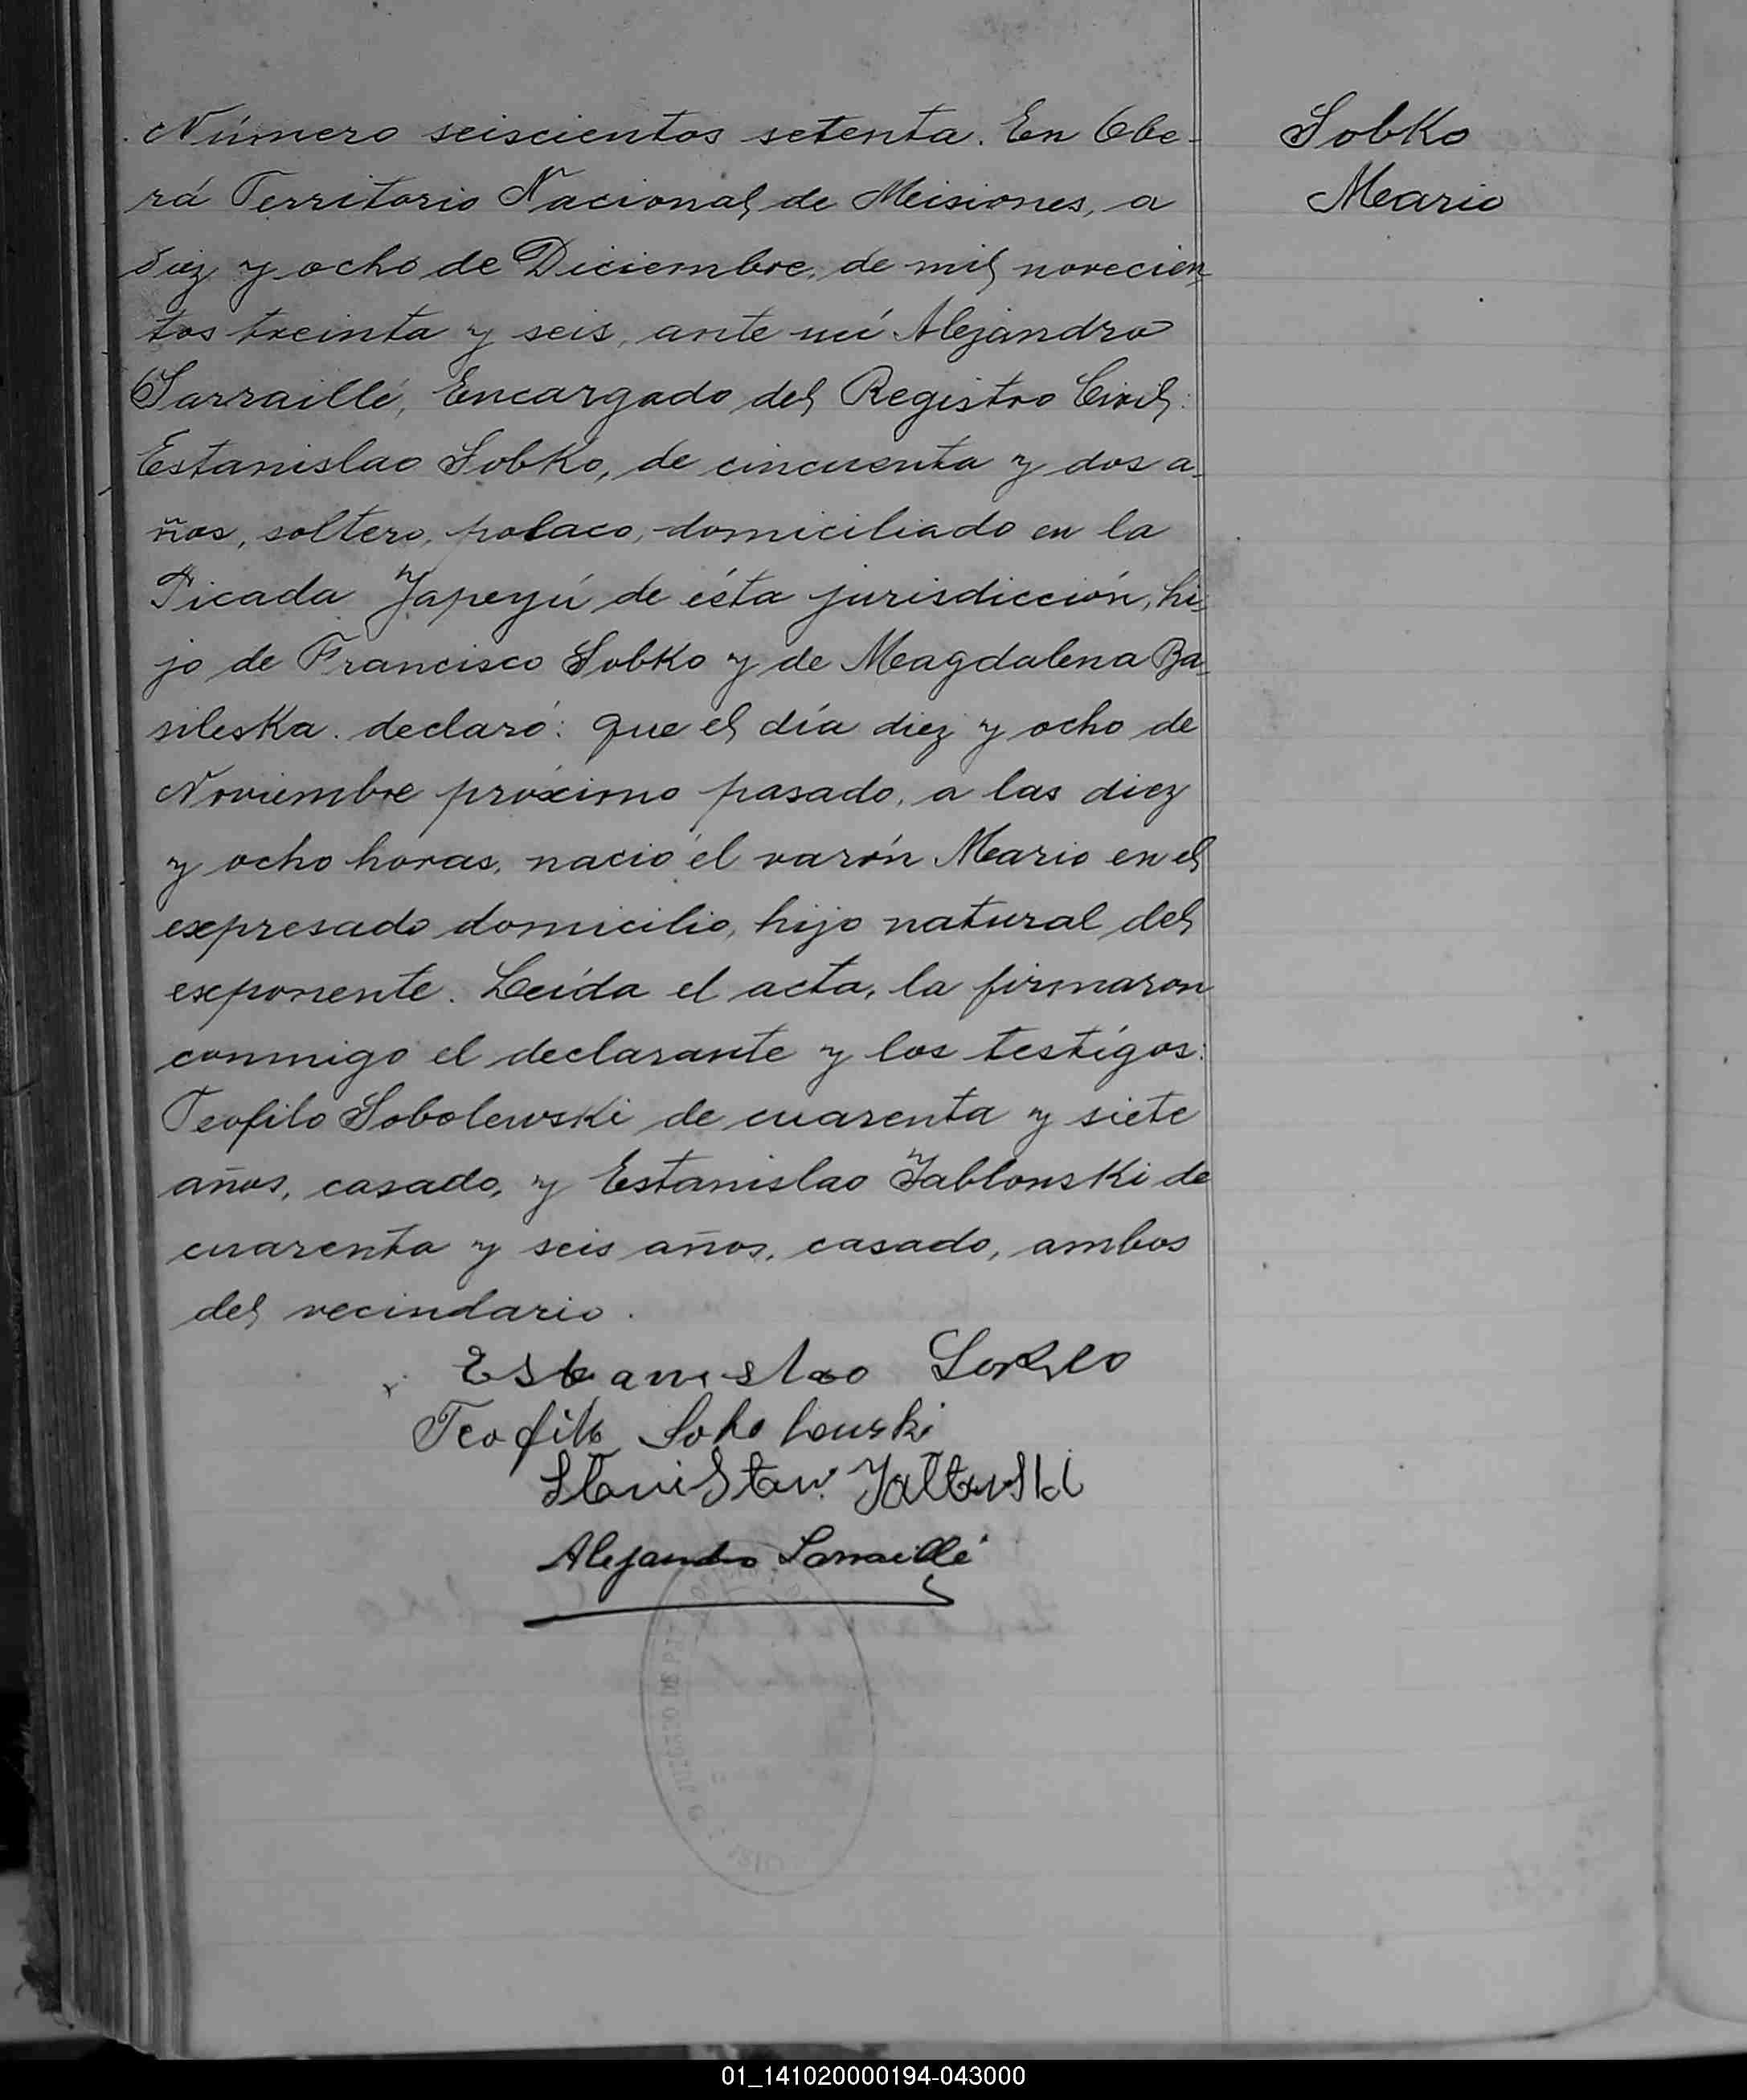 Número seiscientos setenta. En Obe-
rá Territorio Nacional de Misiones, a
diez y ocho de Diciembre, de mil novecien-
tos treinta y seis, ante mí Alejandro
Sarraillé, Encargado del Registro Civil:
Estanislao Sobko, de cincuenta y dos a-
ños, soltero, polaco, domiciliado en la
Picada Yapeyú de ésta jurisdicción, hi-
jo de Francisco Sobko y de Magdalena Ba-
sileska. declaró: que el día diez y ocho de
Noviembre próximo pasado, a las diez
y ocho horas, nació el varón Mario en el
expresado domicilio, hijo natural del
exponente. Leída el acta, la firmaron
conmigo el declarante y los testígos:
Teofilo Sobolewski de cuarenta y siete
años, casado, y Estanislao Yablonski de
cuarenta y seis años, casado, ambos
del vecindario.
Estanislao
Teofilo
Alejandro Sarraillé
Sobko
Mario
01_141020000194-043000